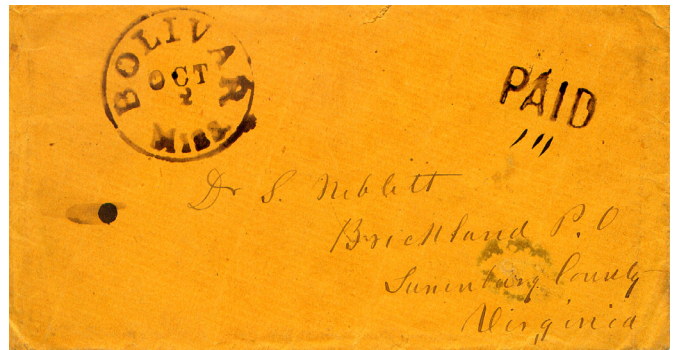 BOLIVAR
OCT
2
Miss.
PAID
III
Dr S. Neblett
Brickland P.O
Lunenburg County
Virginia